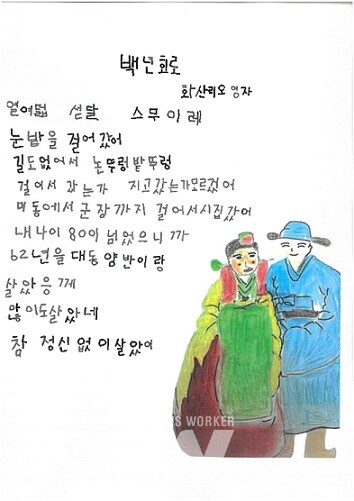 백년회로
화산리오 영자
열여덟 섣달 스무이레
눈밭을 걸어갔어
길도없어서 논뚜렁밭뚜렁
걸어서 갔는가 지고갔는가모르겄어
미동에서 군장까지 걸어서시집갔어
내나이 80이 넘었으니까
62년을 대동양반이랑
살았응께
많이도살았네
참 정신없이살았어
'S WORKER